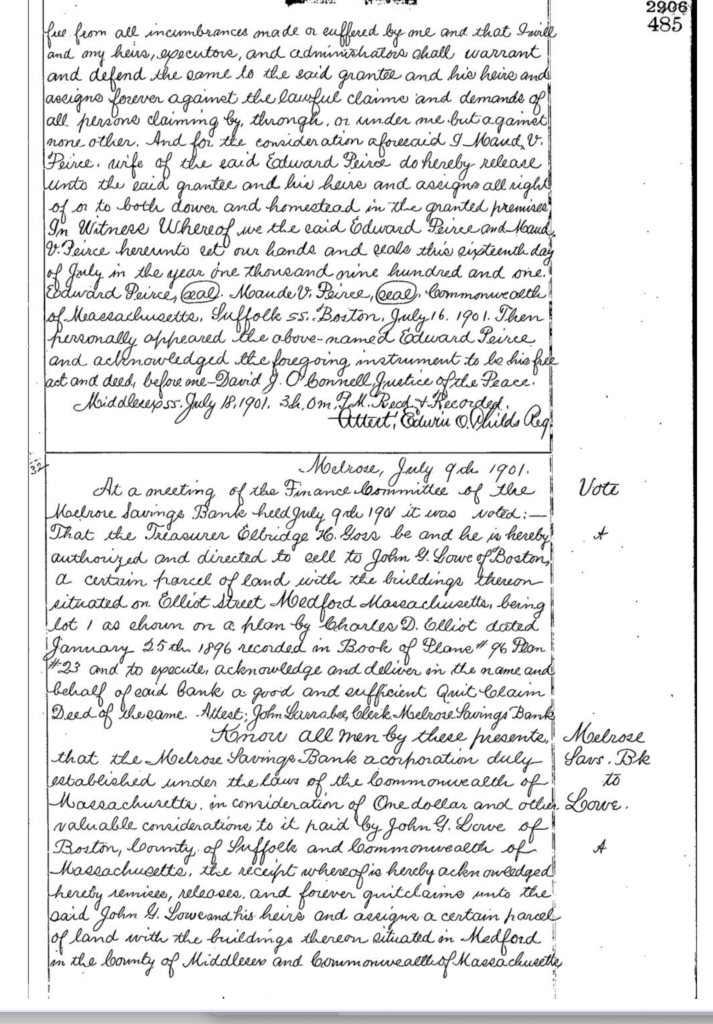 2906
485
free from all incumbrances made or suffered by me and that I will
and my heirs, executors, and administrators shall warrant
and defend the same to the said grantee and his heirs and
assigns forever against the lawful claims and demands of
all persons claiming by, through, or under me but against
none other. And for the consideration aforesaid I Maud V.
Peirce, wife of the said Edward Peirce do hereby release
unto the said grantee and his heirs and assigns all right
of or to both dower and homestead in the granted premises.
In Witness Whereof we the said Edward Peirce and Maud
V. Peirce hereunto set our hands and seals this sixteenth day
of July in the year one thousand nine hundred and one.
Edward Peirce, (seal). Maude V. Peirce, (seal). Commonwealth
of Massachusetts. Suffolk ss. Boston, July 16. 1901. Then
personally appeared the above-named Edward Peirce
and acknowledged the foregoing instrument to be his free
act and deed, before me – David J. O'Connell, Justice of the Peace.
Middlesex ss. July 18, 1901. 3h. 0m. P.M. Recd. & Recorded.
Attest, Edwin O. Childs Reg.
32
Melrose, July 9th. 1901.
At a meeting of the Finance Committee of the
Vote
Melrose Savings Bank held July 9th 1901 it was voted:—
That the Treasurer Elbridge H. Goss be and he is hereby
A
authorized and directed to sell to John G. Lowe of Boston,
a certain parcel of land with the buildings thereon
situated on Elliot Street Medford Massachusetts, being
lot 1 as shown on a plan by Charles D. Elliot dated
January 25th. 1896 recorded in Book of Plans # 96 Plan
#23 and to execute, acknowledge and deliver in the name and
behalf of said bank a good and sufficient Quit Claim
Deed of the same. Attest; John Larrabee, Clerk Melrose Savings Bank
Know all men by these presents,
Melrose
that the Melrose Savings Bank a corporation duly
Savs. Bk
established under the laws of the Commonwealth of
to
Massachusetts, in consideration of One dollar and other
Lowe.
valuable considerations to it paid by John G. Lowe of
Boston, County of Suffolk and Commonwealth of
A
Massachusetts, the receipt whereof is hereby acknowledged
hereby remises, releases, and forever quitclaims unto the
said John G. Lowe and his heirs and assigns a certain parcel
of land with the buildings thereon situated in Medford
in the County of Middlesex and Commonwealth of Massachusetts